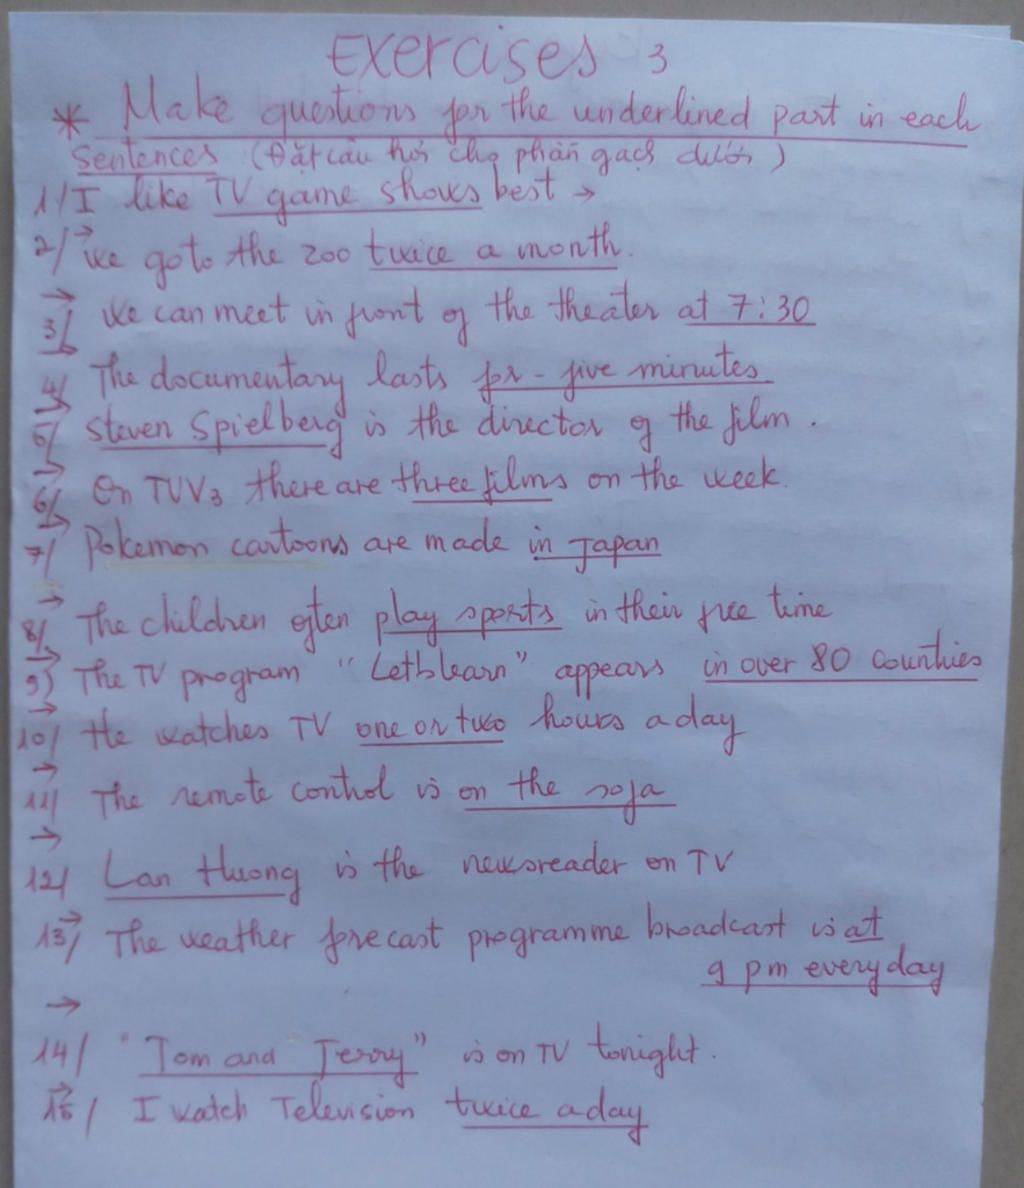 Exercises 3
* Make questions for the underlined part in each
sentences (Đặt câu hỏi cho phần gạch dưới)
1/ I like TV game shows best →
2/ → We go to the zoo twice a month.
→
3/ We can meet in front of the theater at 7:30
→
4/ The documentary lasts for - five minutes
→
5/ Steven Spielberg is the director of the film.
→
6/ On TVV3 there are three films on the week.
→
7/ Pokemon cartoons are made in Japan
→
8/ The children often play sports in their free time
→
9) The TV program "Let's learn" appears in over 80 countries
→
10/ He watches TV one or two hours a day
→
11/ The remote control is on the sofa
→
12/ Lan Huong is the newsreader on TV
→
13/ The weather forecast programme broadcast is at
9 pm everyday
→
14/ "Tom and Jerry" is on TV tonight.
→
15/ I watch Television twice a day